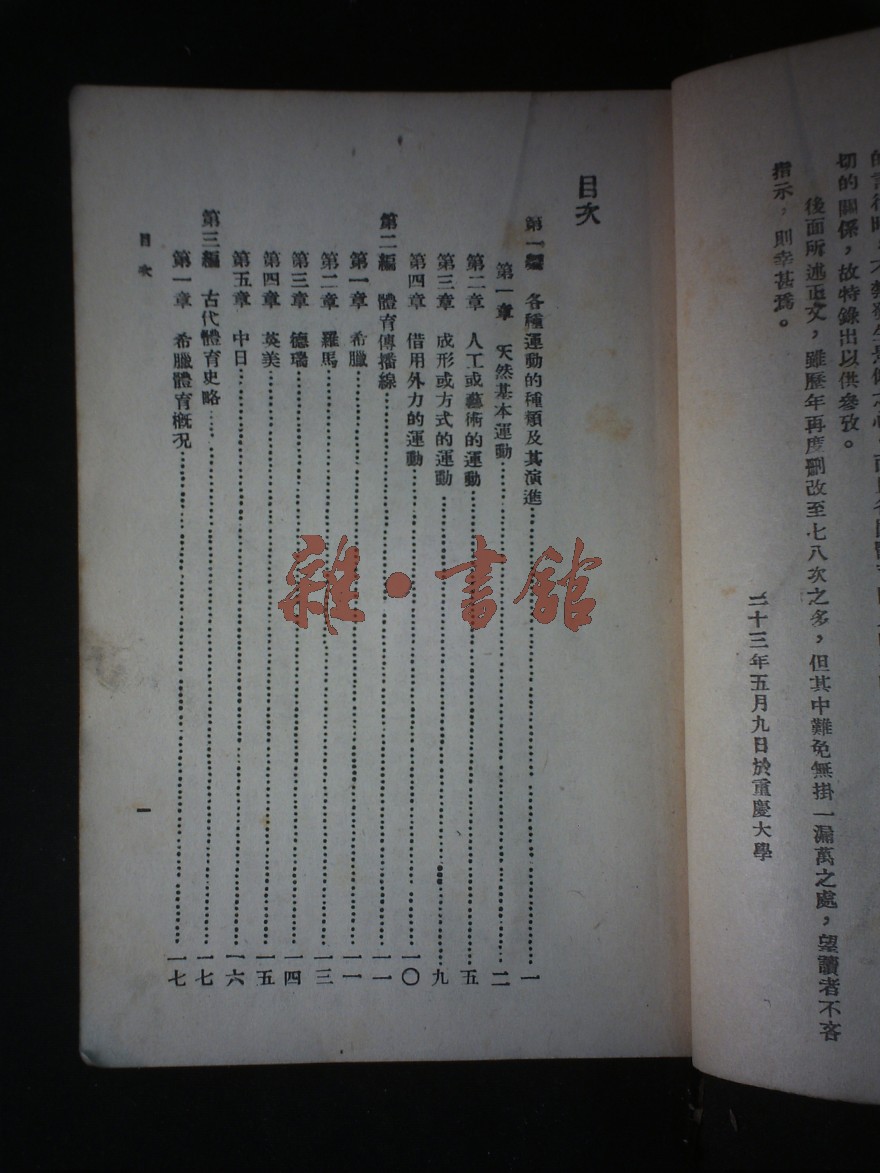 切的關係，故特錄出以供參攷。
後面所述正文，雖歷年再度刪改至七八次之多，但其中難免無掛一漏萬之處，望讀者不吝
指示，則幸甚焉。
二十三年五月九日於重慶大學
目次
第一編 各種運動的種類及其演進……一
第一章 天然基本運動……二
第二章 人工或藝術的運動……五
第三章 成形或方式的運動……九
第四章 借用外力的運動……一〇
第二編 體育傳播線……一一
第一章 希臘……一一
第二章 羅馬……一三
第三章 德瑞……一四
第四章 英美……一五
第五章 中日……一六
第三編 古代體育史略……一七
第一章 希臘體育概況……一七
目次 一
雜·書館